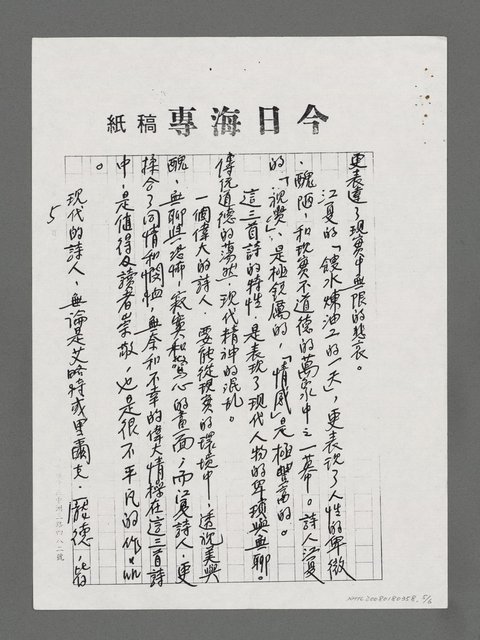 今日海專稿紙
更表達了現實中無限的悲哀。
江夏的「餿水煉油工的一天」,更表說了人性的卑微
、醜陋,和現實不道德的萬家中之一幕。詩人江夏
的「視覺」,是極銳厲的,「情感」是極豐富的。
這三首詩的特性,是表現了現代人物的卑瑣與無聊。
傳統道德的蕩然,現代精神的混乱。
一個偉大的詩人,要能從現實的環境中,透視美與
醜,無聊與恐怖,寂寞和驚心的畫面,而江夏詩人,更
揉合了同情和憫恤,無奈和不幸的偉大情操在這三首詩
中,是值得及讀者崇敬,也是很不平凡的作品
。
5
現代的詩人,無論是艾略特或里爾克,龐德,皆
NMTL20080180358 5/6